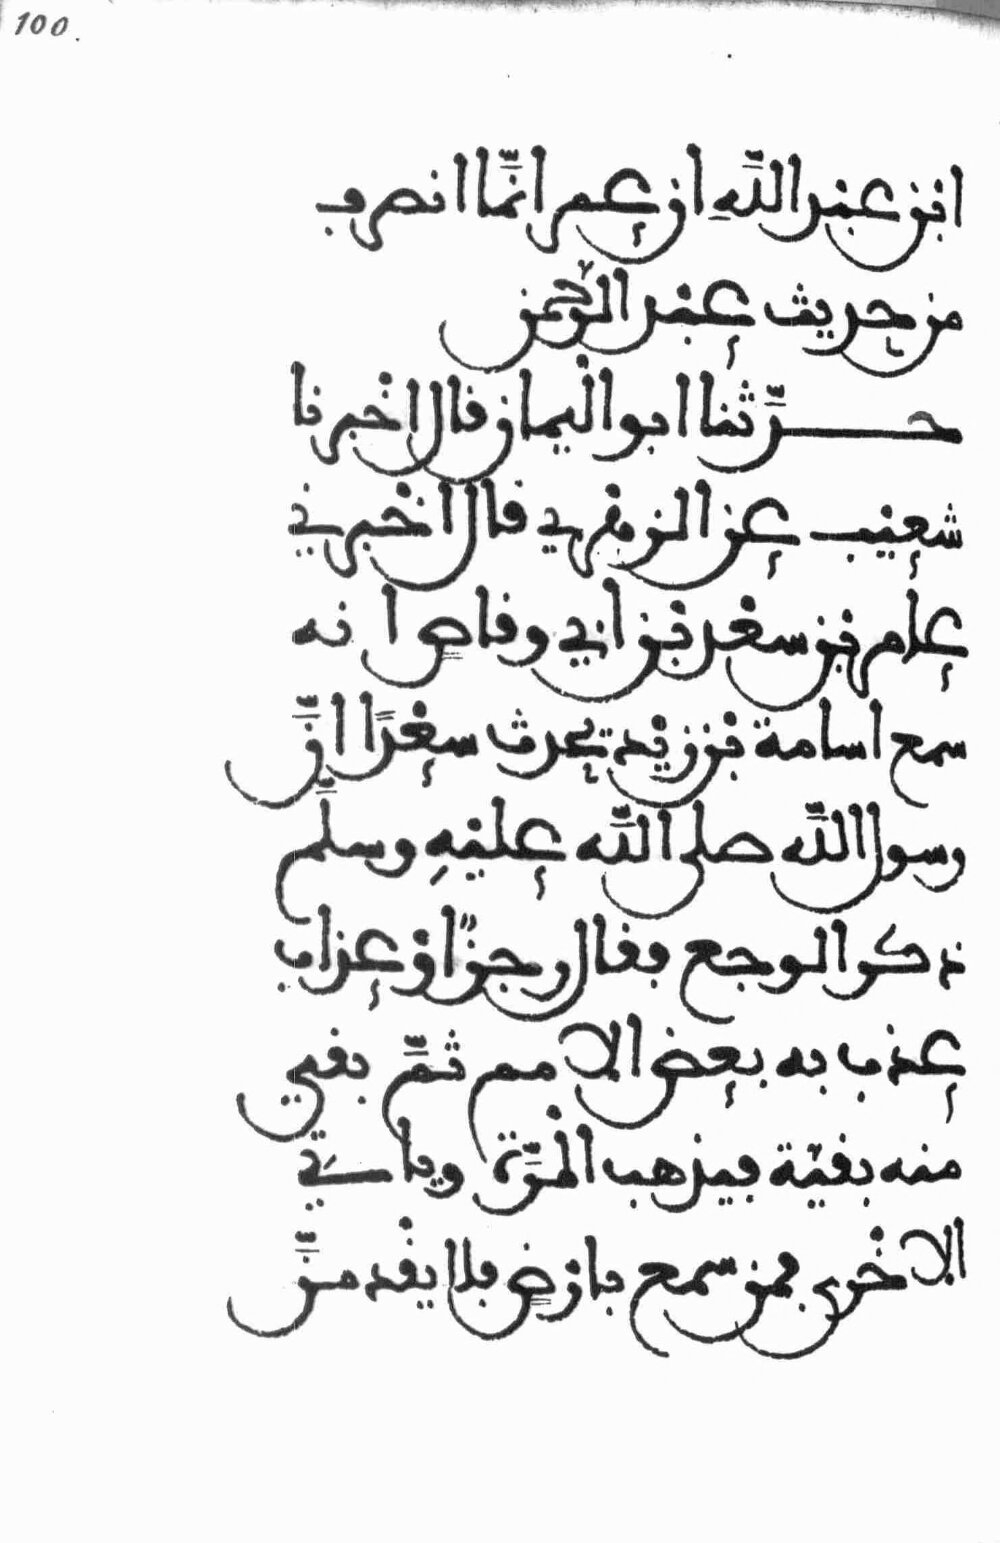 100.
ابن عبد اللّهِ ان عمر انّما انصرف
من حديث عبد الرّحمن
حدّثنا ابو اليمان قال اخبرنا
شعيب عن الزهري قال اخبرني
عامر بن سعد بن ابي وقاصٍ انه
سمع اسامة بن زيد يحدث سعدًا انّ
رسول اللّه صلى اللّه عليهِ وسلّم
ذكر الوجع فقال رجزٌ او عذاب
عذب به بعض الامم ثمّ بقي
منه بقيّة فيذهب المرّة وياتي
الاخرى فمن سمع بارضٍ فلا يقدمنّ